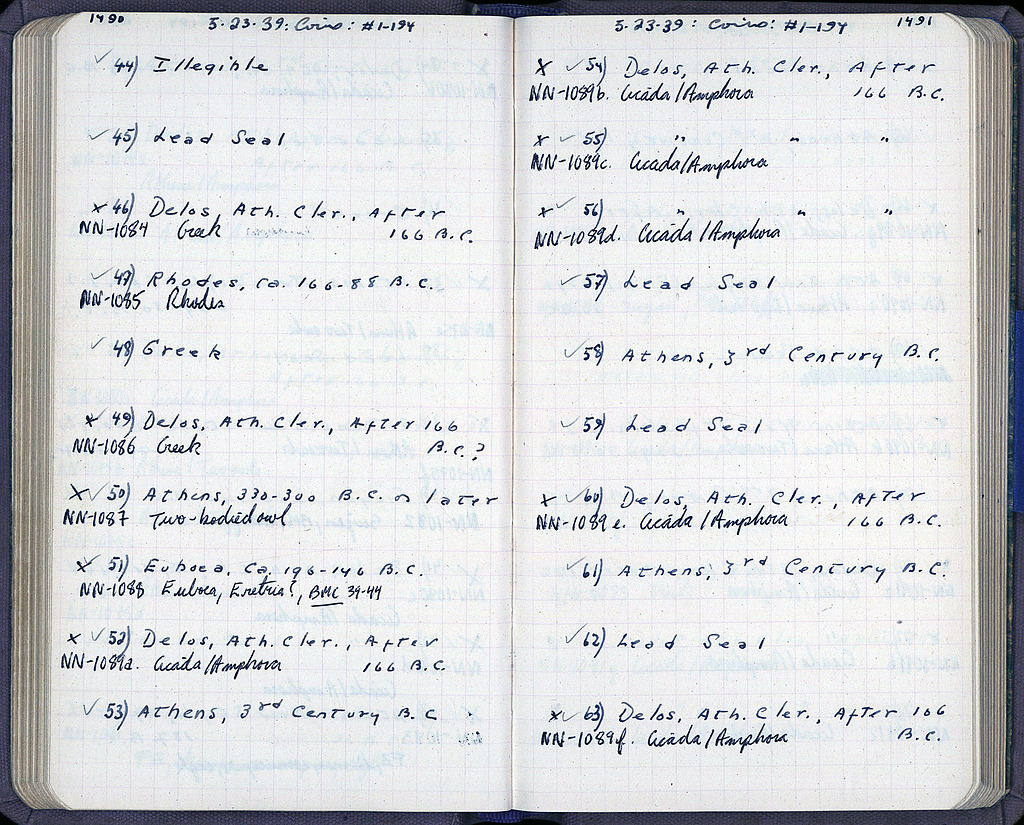 1490
5-23-39: Coins: #1-194
✓ 44) Illegible
✓ 45) Lead Seal
x 46) Delos, Ath. Cler., After
NN-1084 Greek 166 B.C.
✓ 47) Rhodes, ca. 166-88 B.C.
NN-1085 Rhodes
✓ 48) Greek
x 49) Delos, Ath. Cler., After 166
NN-1086 Greek B.C.?
x ✓ 50) Athens, 330-300 B.C. or later
NN-1087 Two-bodied owl
x 51) Euboea. Ca. 196-146 B.C.
NN-1088 Euboea, Eretria?, BMC 39-44
x ✓ 52) Delos, Ath. Cler., After
NN-1089a. Cicada/Amphora 166 B.C.
✓ 53) Athens, 3rd Century B.C.
5-23-39: Coins: #1-194
1491
x ✓ 54) Delos, Ath. Cler., After
NN-1089b. Cicada/Amphora 166 B.C.
x ✓ 55) " " "
NN-1089c. Cicada/Amphora
x ✓ 56) " " "
NN-1089d. Cicada/Amphora
✓ 57) Lead Seal
✓ 58) Athens, 3rd Century B.C.
✓ 59) Lead Seal
x ✓ 60) Delos, Ath. Cler., After
NN-1089e. Cicada/Amphora 166 B.C.
✓ 61) Athens, 3rd Century B.C.
✓ 62) Lead Seal
x ✓ 63) Delos, Ath. Cler., After 166
NN-1089f. Cicada/Amphora B.C.